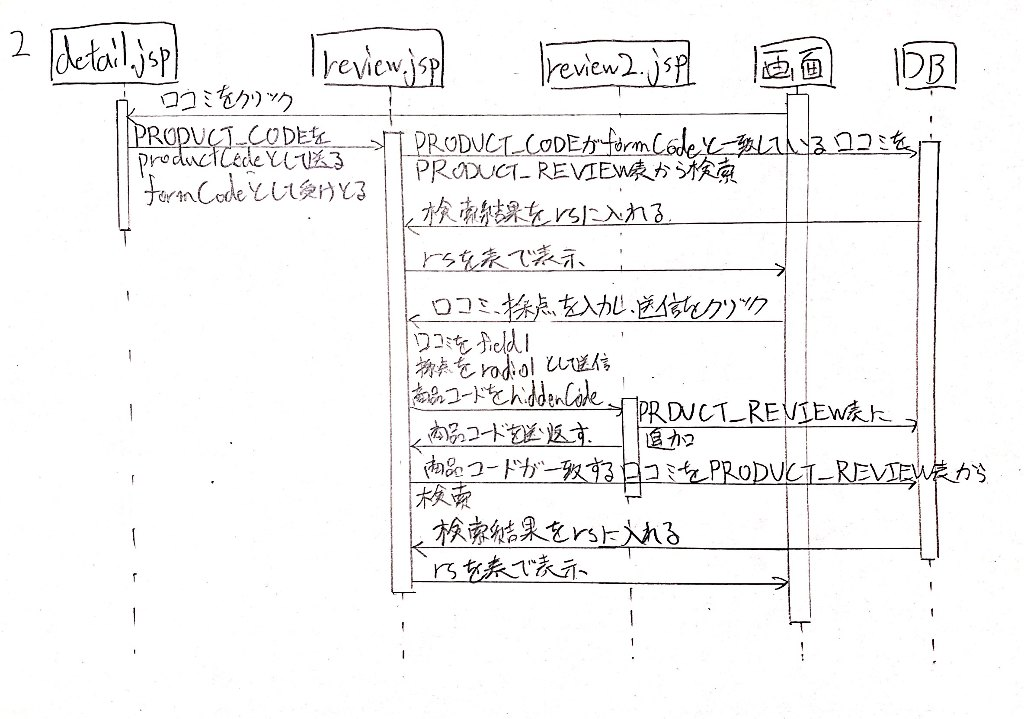 2
detail.jsp
review.jsp
review2.jsp
画面
DB
口コミをクリック
PRODUCT_CODEを
productCodeとして送る
formCodeとして受けとる
PRODUCT_CODEがformCodeと一致している口コミを
PRODUCT_REVIEW表から検索
検索結果をrsに入れる
rsを表で表示、
口コミ、採点を入力し、送信をクリック
口コミをfield1
採点をradio1として送信
商品コードをhiddenCode
PRDUCT_REVIEW表に
追加
商品コードを送り返す.
商品コードが一致する口コミをPRODUCT_REVIEW表から
検索
検索結果をrsに入れる
rsを表で表示、